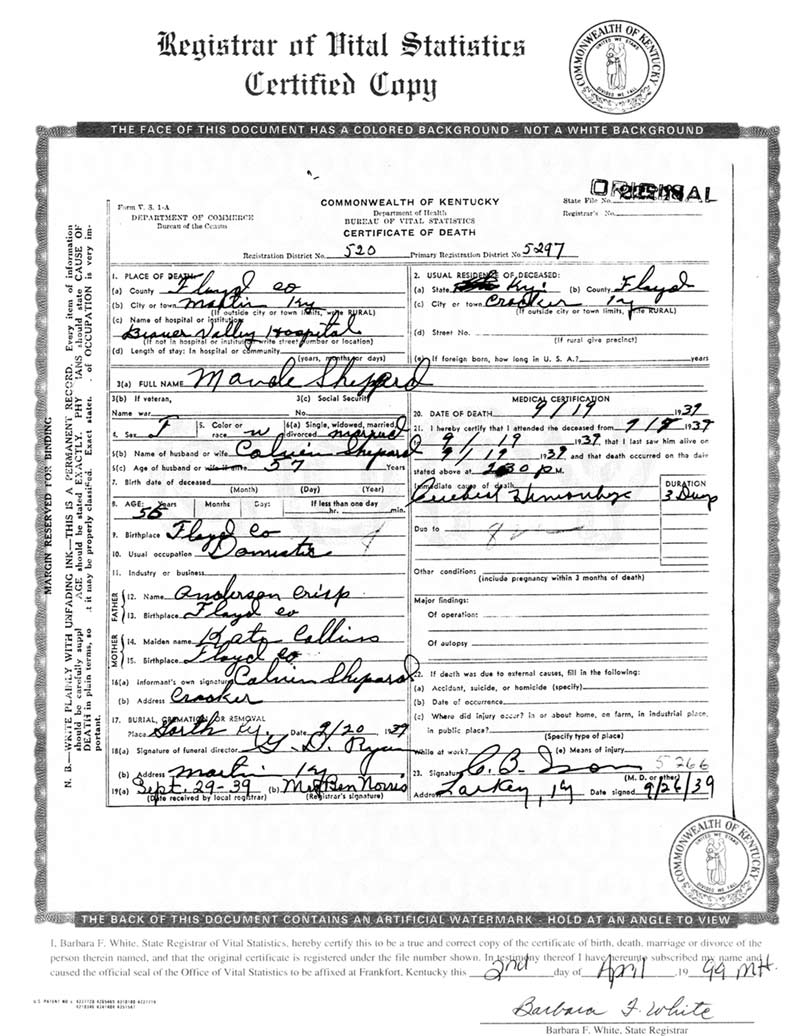 Registrar of Vital Statistics
Certified Copy
COMMONWEALTH OF KENTUCKY
UNITED WE STAND
DIVIDED WE FALL
THE FACE OF THIS DOCUMENT HAS A COLORED BACKGROUND - NOT A WHITE BACKGROUND
ORIGINAL
Form V. S. 1-A
DEPARTMENT OF COMMERCE
Bureau of the Census
COMMONWEALTH OF KENTUCKY
Department of Health
BUREAU OF VITAL STATISTICS
CERTIFICATE OF DEATH
State File No.
Registrar's No.
Registration District No. 520 Primary Registration District No. 5297
MARGIN RESERVED FOR BINDING
N. B.—WRITE PLAINLY WITH UNFADING INK—THIS IS A PERMANENT RECORD. Every item of information
should be carefully AGE should be stated EXACTLY. should state CAUSE OF
DEATH in plain terms, so it may be properly classified. Exact of OCCUPATION is very im-
portant.
1. PLACE OF DEATH
(a) County Floyd Co
(b) City or town Martin Ky
(If outside city or town limits, write RURAL)
(c) Name of hospital or institution
Beaver Valley Hospital
(If not in hospital or institution write street number or location)
(d) Length of stay: In hospital or community
(years, months or days)
2. USUAL RESIDENCE OF DECEASED:
(a) State Ky. (b) County Floyd
(c) City or town Crooker Ky
(If outside city or town limits, write RURAL)
(d) Street No.
(If rural give precinct)
(e) If foreign born, how long in U. S. A.? years
3(a) FULL NAME Maude Shepard
3(b) If veteran,
Name war
3(c) Social Security
No.
4. Sex F 5. Color or race w 6(a) Single, widowed, married, divorced married
6(b) Name of husband or wife Calvin Shepard
6(c) Age of husband or wife if alive 57 Years
7. Birth date of deceased
(Month) (Day) (Year)
8. AGE: Years Months Days If less than one day
56 hr. min.
9. Birthplace Floyd Co
10. Usual occupation Domestic
11. Industry or business
FATHER
12. Name Anderson Crisp
13. Birthplace Floyd Co
MOTHER
14. Maiden name Kate Collins
15. Birthplace Floyd Co
16(a) Informant's own signature Calvin Shepard
(b) Address Crooker
17. BURIAL, CREMATION OR REMOVAL
Place Garth Ky. Date 9/20 1939
18(a) Signature of funeral director G. D. Ryan
(b) Address Martin Ky
19(a) Sept. 29-39 (b) Mrs Ben Norris
(Date received by local registrar) (Registrar's signature)
MEDICAL CERTIFICATION
20. DATE OF DEATH 9/19 1939
21. I hereby certify that I attended the deceased from 9/18 1939
9/19 1939 that I last saw him alive on
9/19 1939 and that death occurred on the date
stated above at 2:30 P M.
Immediate cause of death
Cerebral Hemorrhage
DURATION
3 Days
Due to
Other conditions
(include pregnancy within 3 months of death)
Major findings:
Of operation:
Of autopsy
22. If death was due to external causes, fill in the following:
(a) Accident, suicide, or homicide (specify)
(b) Date of occurrence
(c) Where did injury occur? In or about home, on farm, in industrial place,
in public place?
(Specify type of place)
While at work? (e) Means of injury
5266
23. Signature C. B. Ison
(M. D. or other)
Address Larkey, Ky Date signed 9/26/39
COMMONWEALTH OF KENTUCKY
UNITED WE STAND
DIVIDED WE FALL
THE BACK OF THIS DOCUMENT CONTAINS AN ARTIFICIAL WATERMARK - HOLD AT AN ANGLE TO VIEW
I, Barbara F. White, State Registrar of Vital Statistics, hereby certify this to be a true and correct copy of the certificate of birth, death, marriage or divorce of the
person therein named, and that the original certificate is registered under the file number shown. In testimony thereof I have hereunto subscribed my name and
caused the official seal of the Office of Vital Statistics to be affixed at Frankfort, Kentucky this 2nd day of April 19 99 MH.
Barbara F. White
Barbara F. White, State Registrar